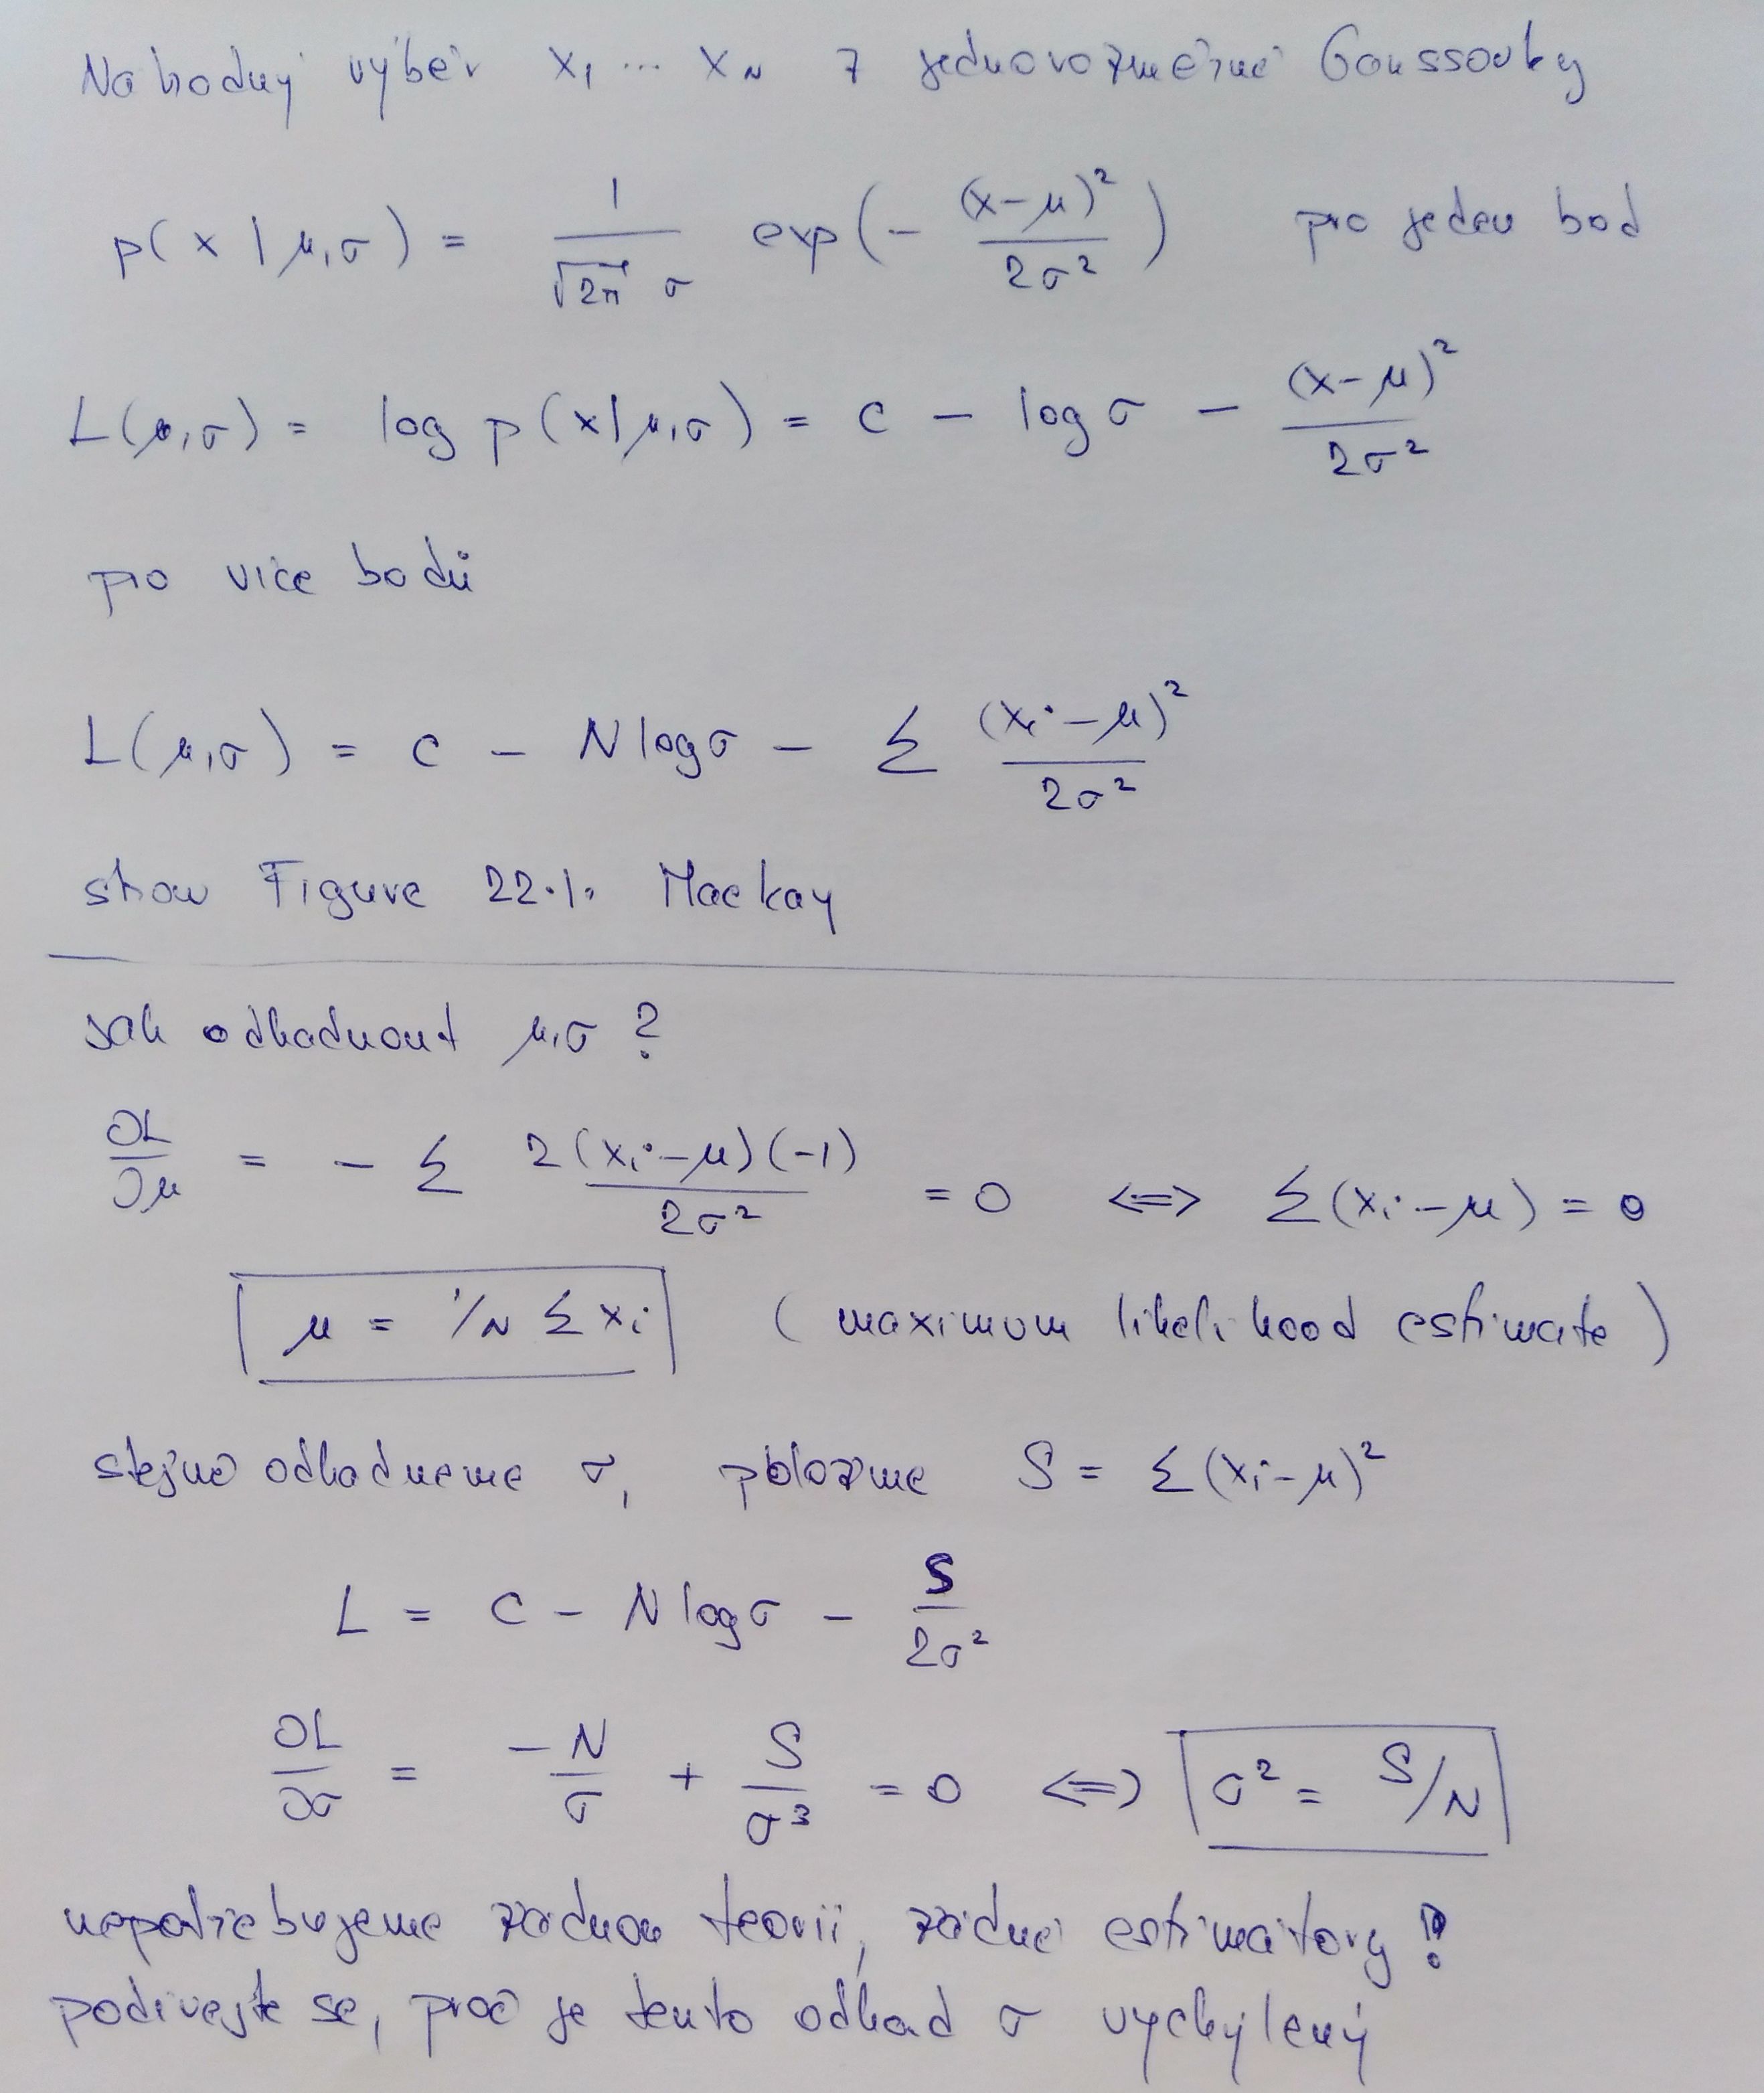 Náhodný výběr x₁ ... x_N z jednorozměrné Gaussovky
p(x | μ,σ) = 1/(√2π σ) exp(− (x−μ)²/2σ²) pro jeden bod
L(μ,σ) = log p(x|μ,σ) = c − log σ − (x−μ)²/2σ²
pro více bodů
L(μ,σ) = c − N log σ − Σ (xᵢ−μ)²/2σ²
show Figure 22.1. Mackay
Jak odhadnout μ,σ ?
∂L/∂μ = − Σ 2(xᵢ−μ)(−1)/2σ² = 0 ⟺ Σ(xᵢ−μ) = 0
μ = 1/N Σ xᵢ (maximum likelihood estimate)
stejně odhadneme σ, položme S = Σ(xᵢ−μ)²
L = c − N log σ − S/2σ²
∂L/∂σ = −N/σ + S/σ³ = 0 ⟺ σ² = S/N
nepotřebujeme žádnou teorii, žádné estimátory !
podívejte se, proč je tento odhad σ vychýlený